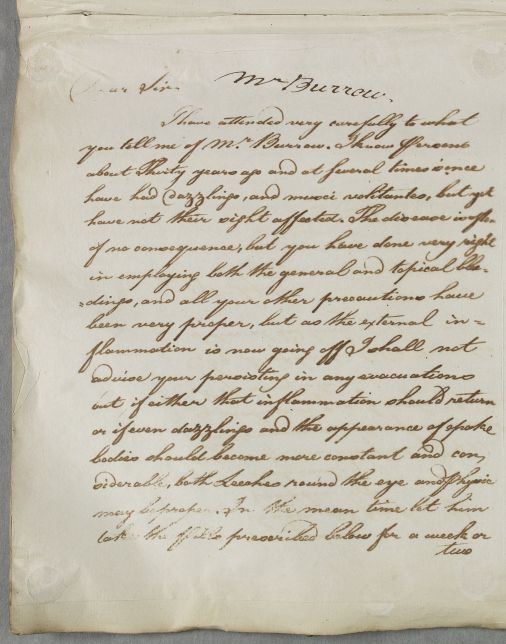 Dear Sir.
Mr Burrow.
I have attended very carefully to what
you tell me of Mr Burrow. I know
about Thirty years ago and at several times since
have had Dazzlings, and musci volitantes, but yet
have not their sight affected. The disease is oft.
of no consequence, but you have done very right
in employing both the general and topical blee-
=dings, and all your other precautions have
been very proper, but as the external in=
flammation is now going off I shall not
advise your persisting in any evacuations
but if either that inflammation should return
or if even dazzlings and the appearance of opake
bodies should become more constant and con,
siderable, both Leeches round the eye and Physic
may be proper. In the mean time let him
take the Pills prescribed below for a week or
two